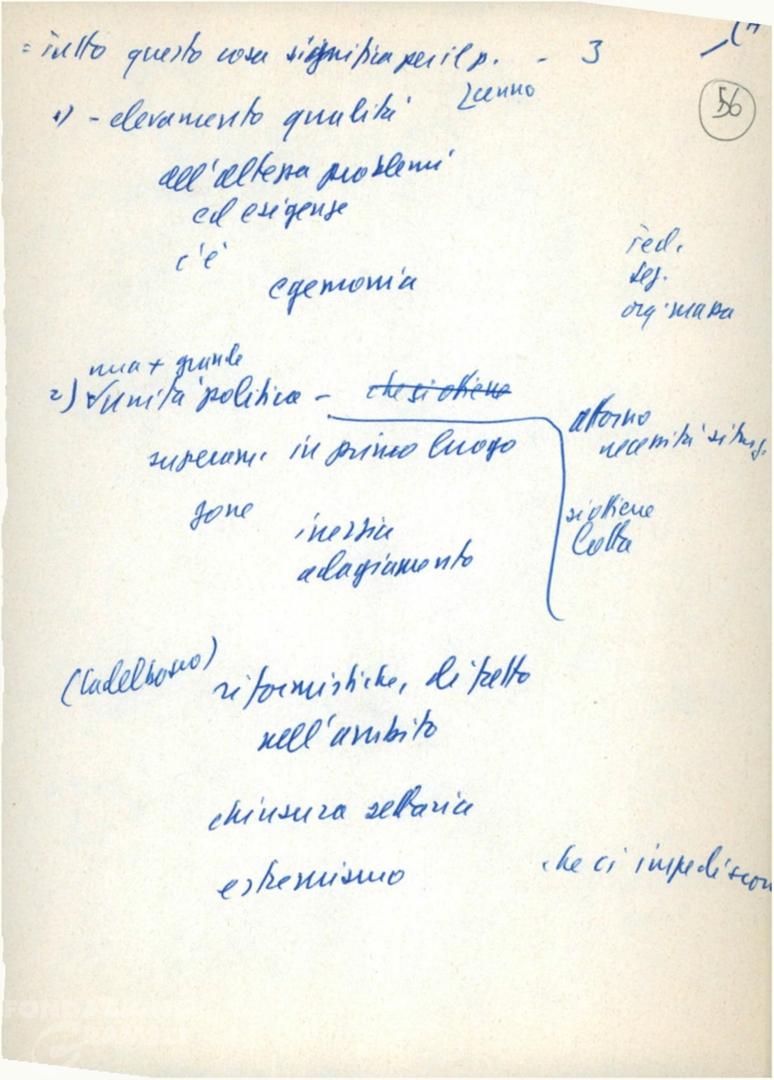 = tutto questo cosa significa per il p. - 3
56
1) - elevamento qualità
all'altezza problemi
ed esigenze
c'è
egemonia
fed.
sez.
org. massa
una + grande
2) √ unità politica - che si ottiene
superam. in primo luogo
zone
inerzia
adagiamento
attorno
necessità
si ottiene
lotta
(Cadelbosco)
riformistiche, difetto
nell'ambito
chiusura settaria
estremismo
che ci impediscon
FONDAZIONE